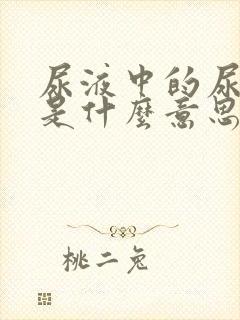 尿液中的尿
是什麼意思
桃二兔